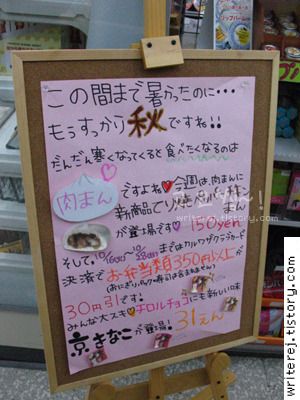 この間まで暑かったのに…
もうすっかり秋ですね!!
だんだん寒くなってくると食べたくなるのは
肉まん
ですよね♥今週は、肉まんに
新商品てり焼チキン
まん
が登場です! 150yen
そして、10/16(火)〜10/28(日)まではクルワザクラブカード
決済でお弁当類350円以上が
(おにぎり、パック寿司は含まれません)
30円引です!
みんな大スキ♥チロルチョコにも新しい味
京きなこが登場! 31えん
writerej.tistory.com
writerej.tistory.com